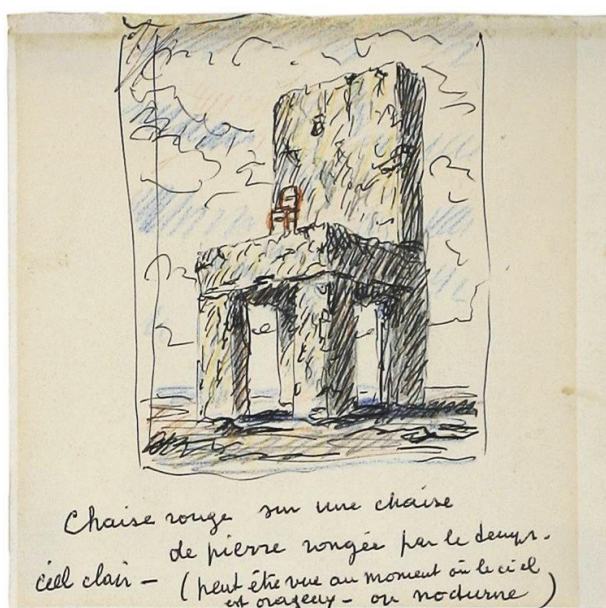 Chaise rouge sur une chaise
de pierre rongée par le temps.
ciel clair – (peut être vue au moment où le ciel
est orageux – ou nocturne)